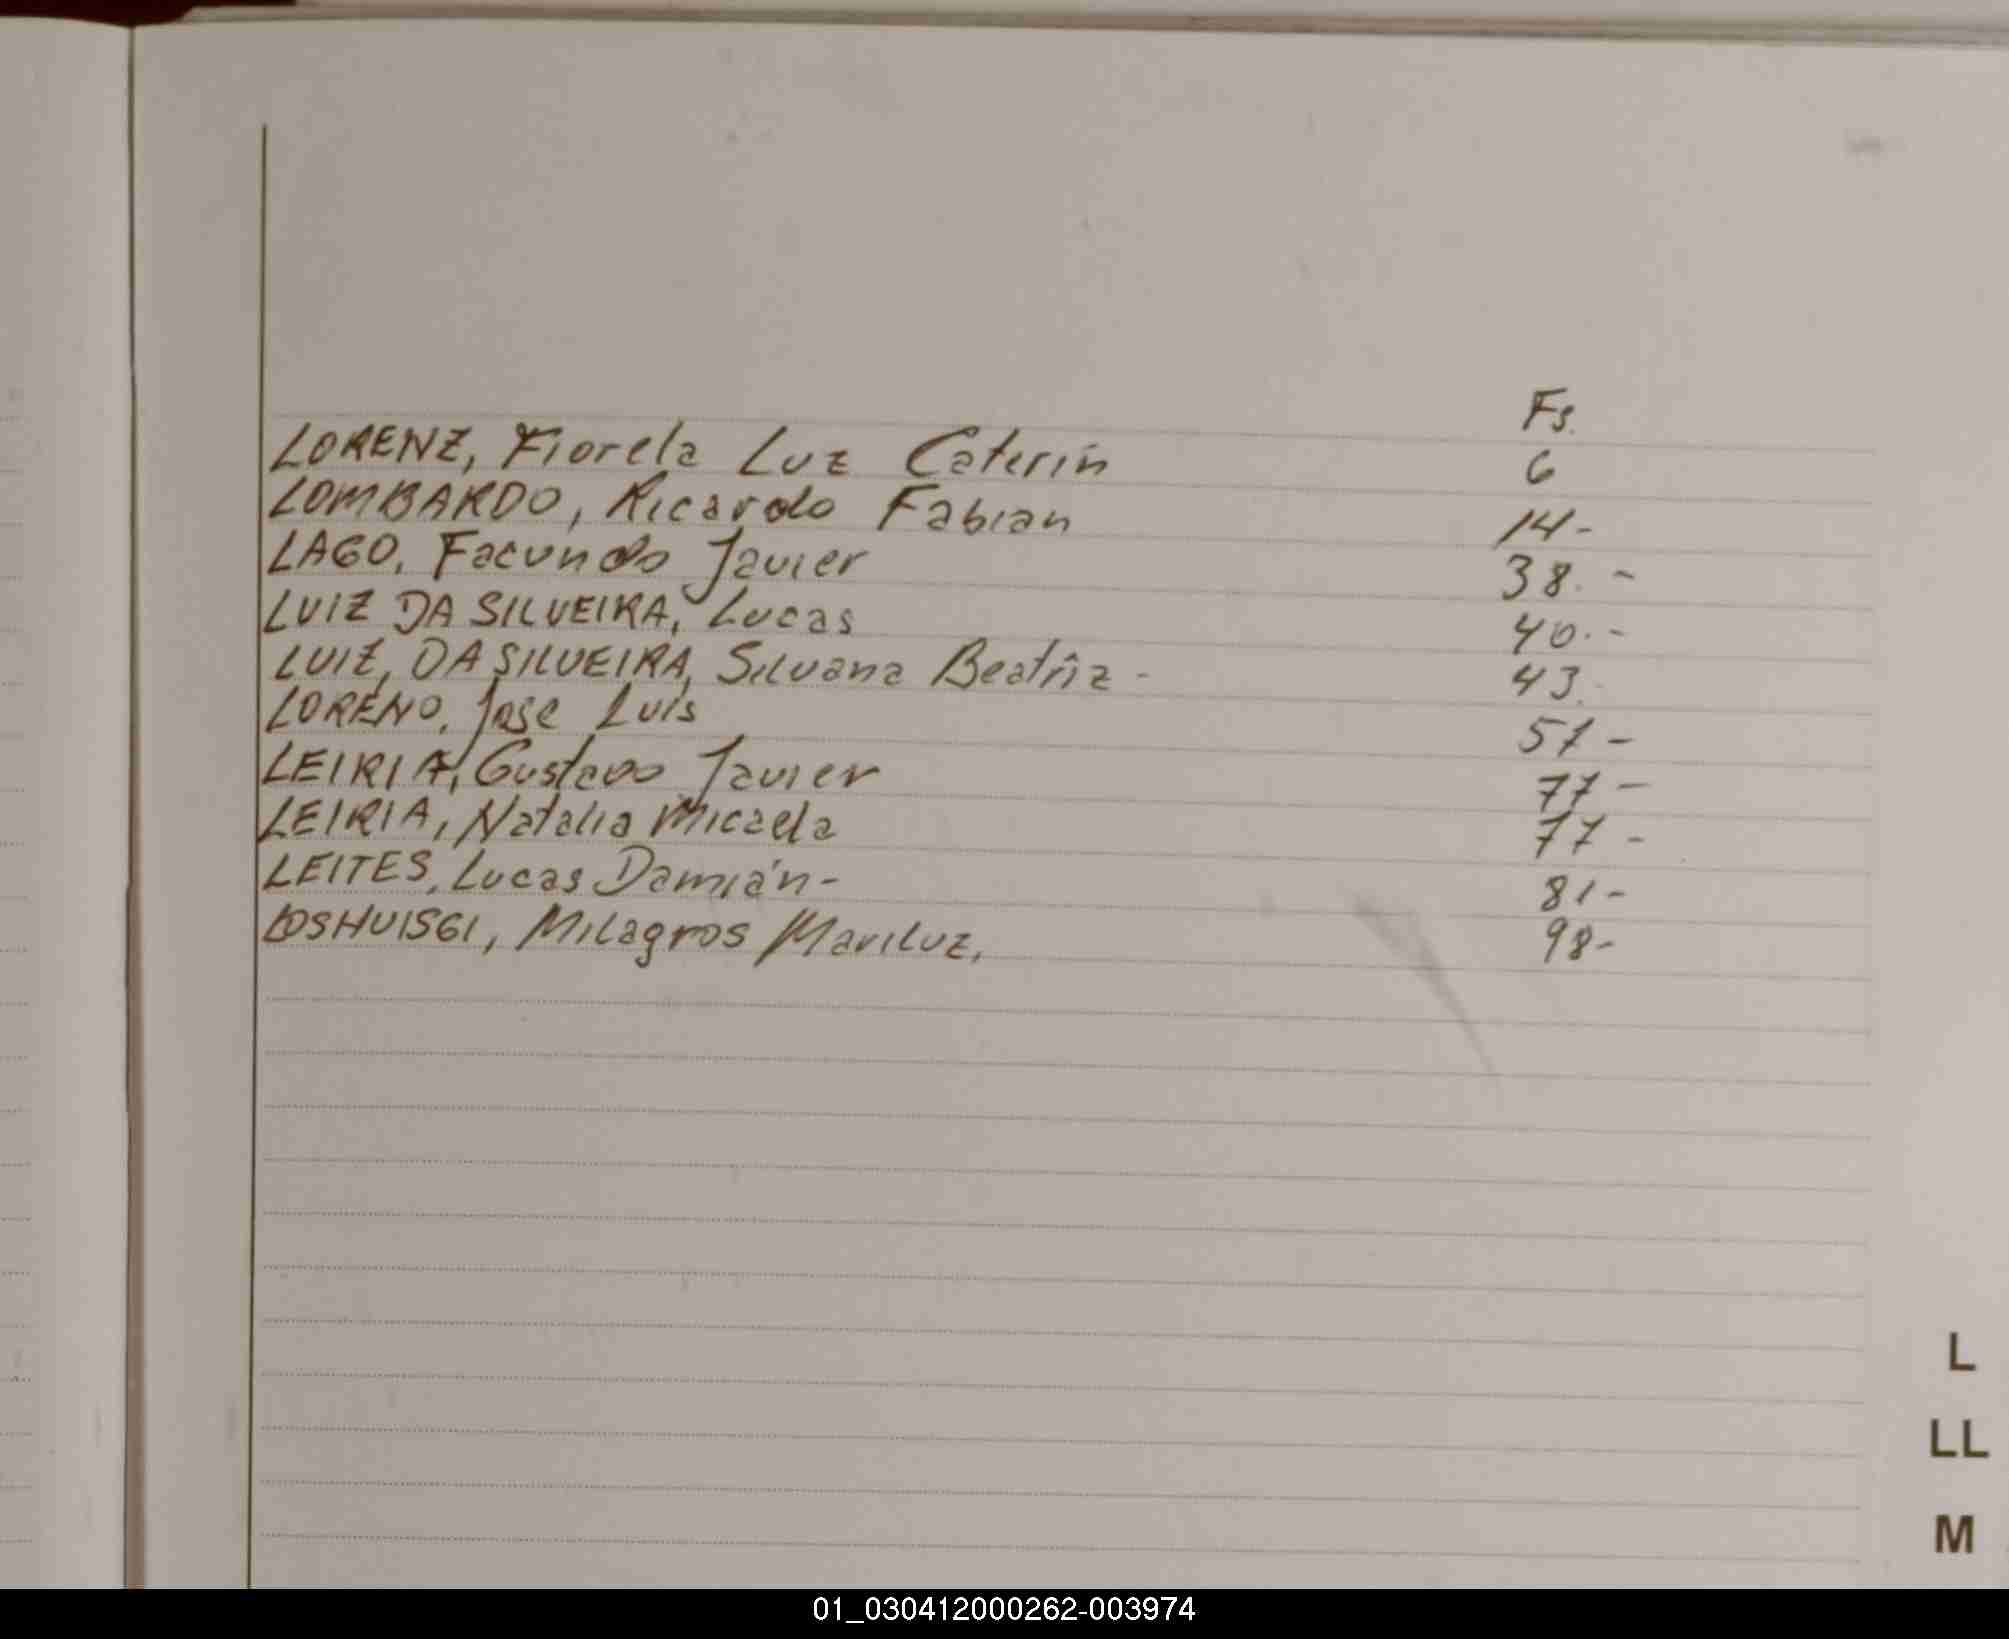 Fs.
LORENZ, Fiorela Luz Caterin 6
LOMBARDO, Ricardo Fabian 14-
LAGO, Facundo Javier 38. -
LUIZ DA SILVEIRA, Lucas 40.-
LUIZ, DA SILVEIRA, Silvana Beatriz - 43.
LORENO, Jose Luis 51-
LEIRIA, Gustavo Javier 77-
LEIRIA, Natalia Micaela 77-
LEITES, Lucas Damián- 81-
LOSHUISGI, Milagros Mariluz, 98-
L
LL
M
01_030412000262-003974